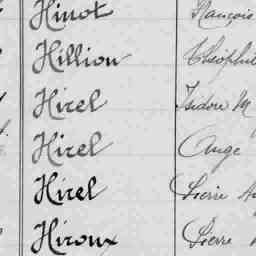 Hinot François
Hillion Théophil
Hirel Isidore M
Hirel Ange
Hirel Pierre
Hiroux Pierre